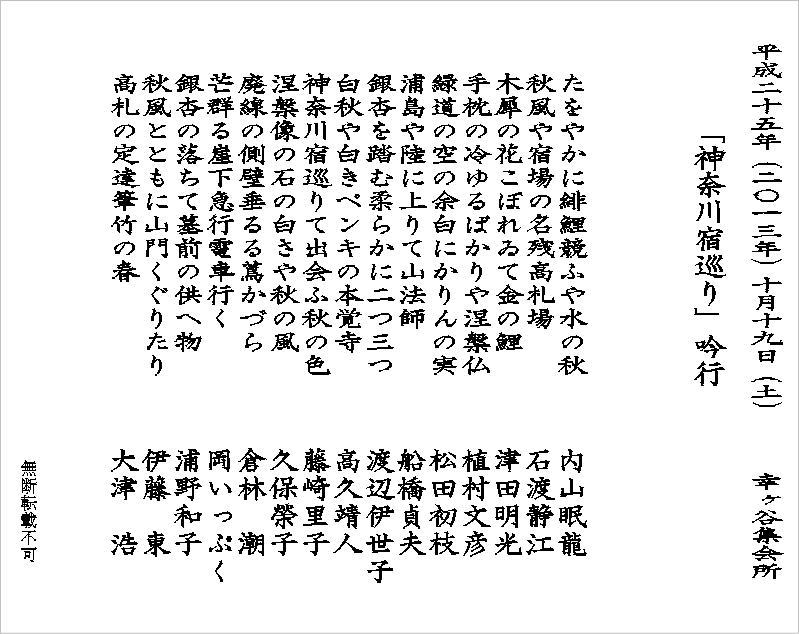 平成二十五年（二〇一三年）十月十九日（土） 幸ヶ谷集会所
「神奈川宿巡り」吟行
たをやかに緋鯉競ふや水の秋 内山眠龍
秋風や宿場の名残高札場 石渡静江
木犀の花こぼれゐて金の鯉 津田明光
手枕の冷ゆるばかりや涅槃仏 植村文彦
緑道の空の余白にかりんの実 松田初枝
浦島や陸に上りて山法師 船橋貞夫
銀杏を踏む柔らかに二つ三つ 渡辺伊世子
白秋や白きペンキの本覚寺 高久靖人
神奈川宿巡りて出会ふ秋の色 藤崎里子
涅槃像の石の白さや秋の風 久保榮子
廃線の側壁垂るる蔦かづら 倉林潮
芒群る崖下急行電車行く 岡いっぷく
銀杏の落ちて墓前の供へ物 浦野和子
秋風とともに山門くぐりたり 伊藤東
高札の定達筆竹の春 大津浩
無断転載不可